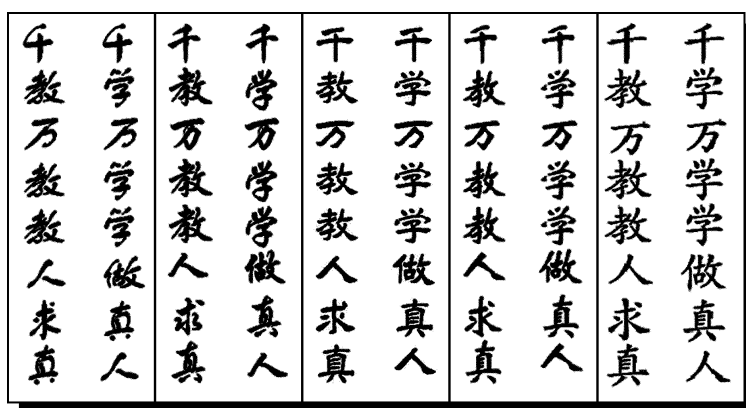 千教万教教人求真
千学万学学做真人
千教万教教人求真
千学万学学做真人
千教万教教人求真
千学万学学做真人
千教万教教人求真
千学万学学做真人
千教万教教人求真
千学万学学做真人